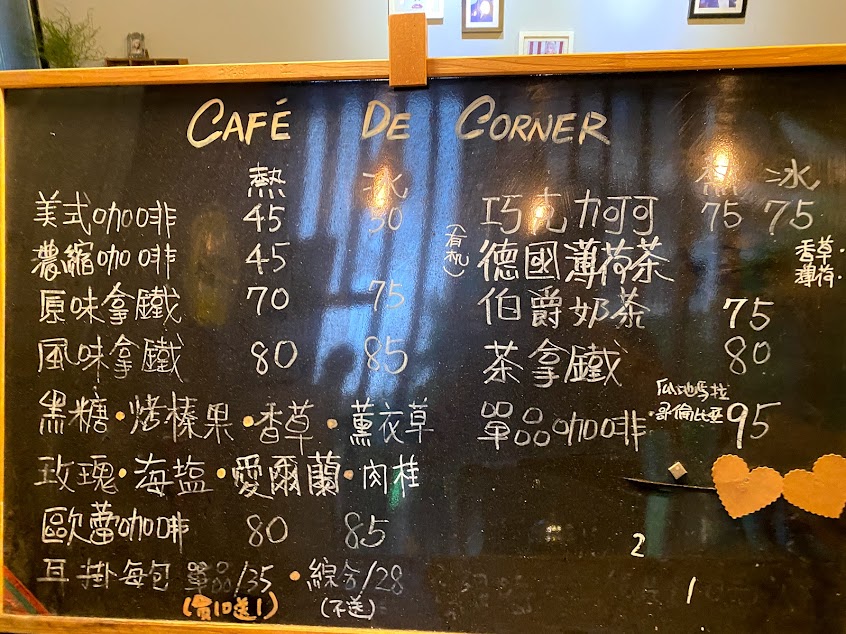 CAFÉ DE CORNER
熱 冰
美式咖啡 45 50
濃縮咖啡 45
原味拿鐵 70 75
風味拿鐵 80 85
黑糖·烤榛果·香草·薰衣草
玫瑰·海塩·愛爾蘭·肉桂
歐蕾咖啡 80 85
耳掛每包 單品/35·綜合/28
(買10送1) (不送)
熱 冰
巧克力可可 75 75
(有机) 德國薄荷茶
香草·
薄荷·
伯爵奶茶 75
茶拿鐵 80
瓜地馬拉
單品咖啡·哥倫比亞 95
2
1